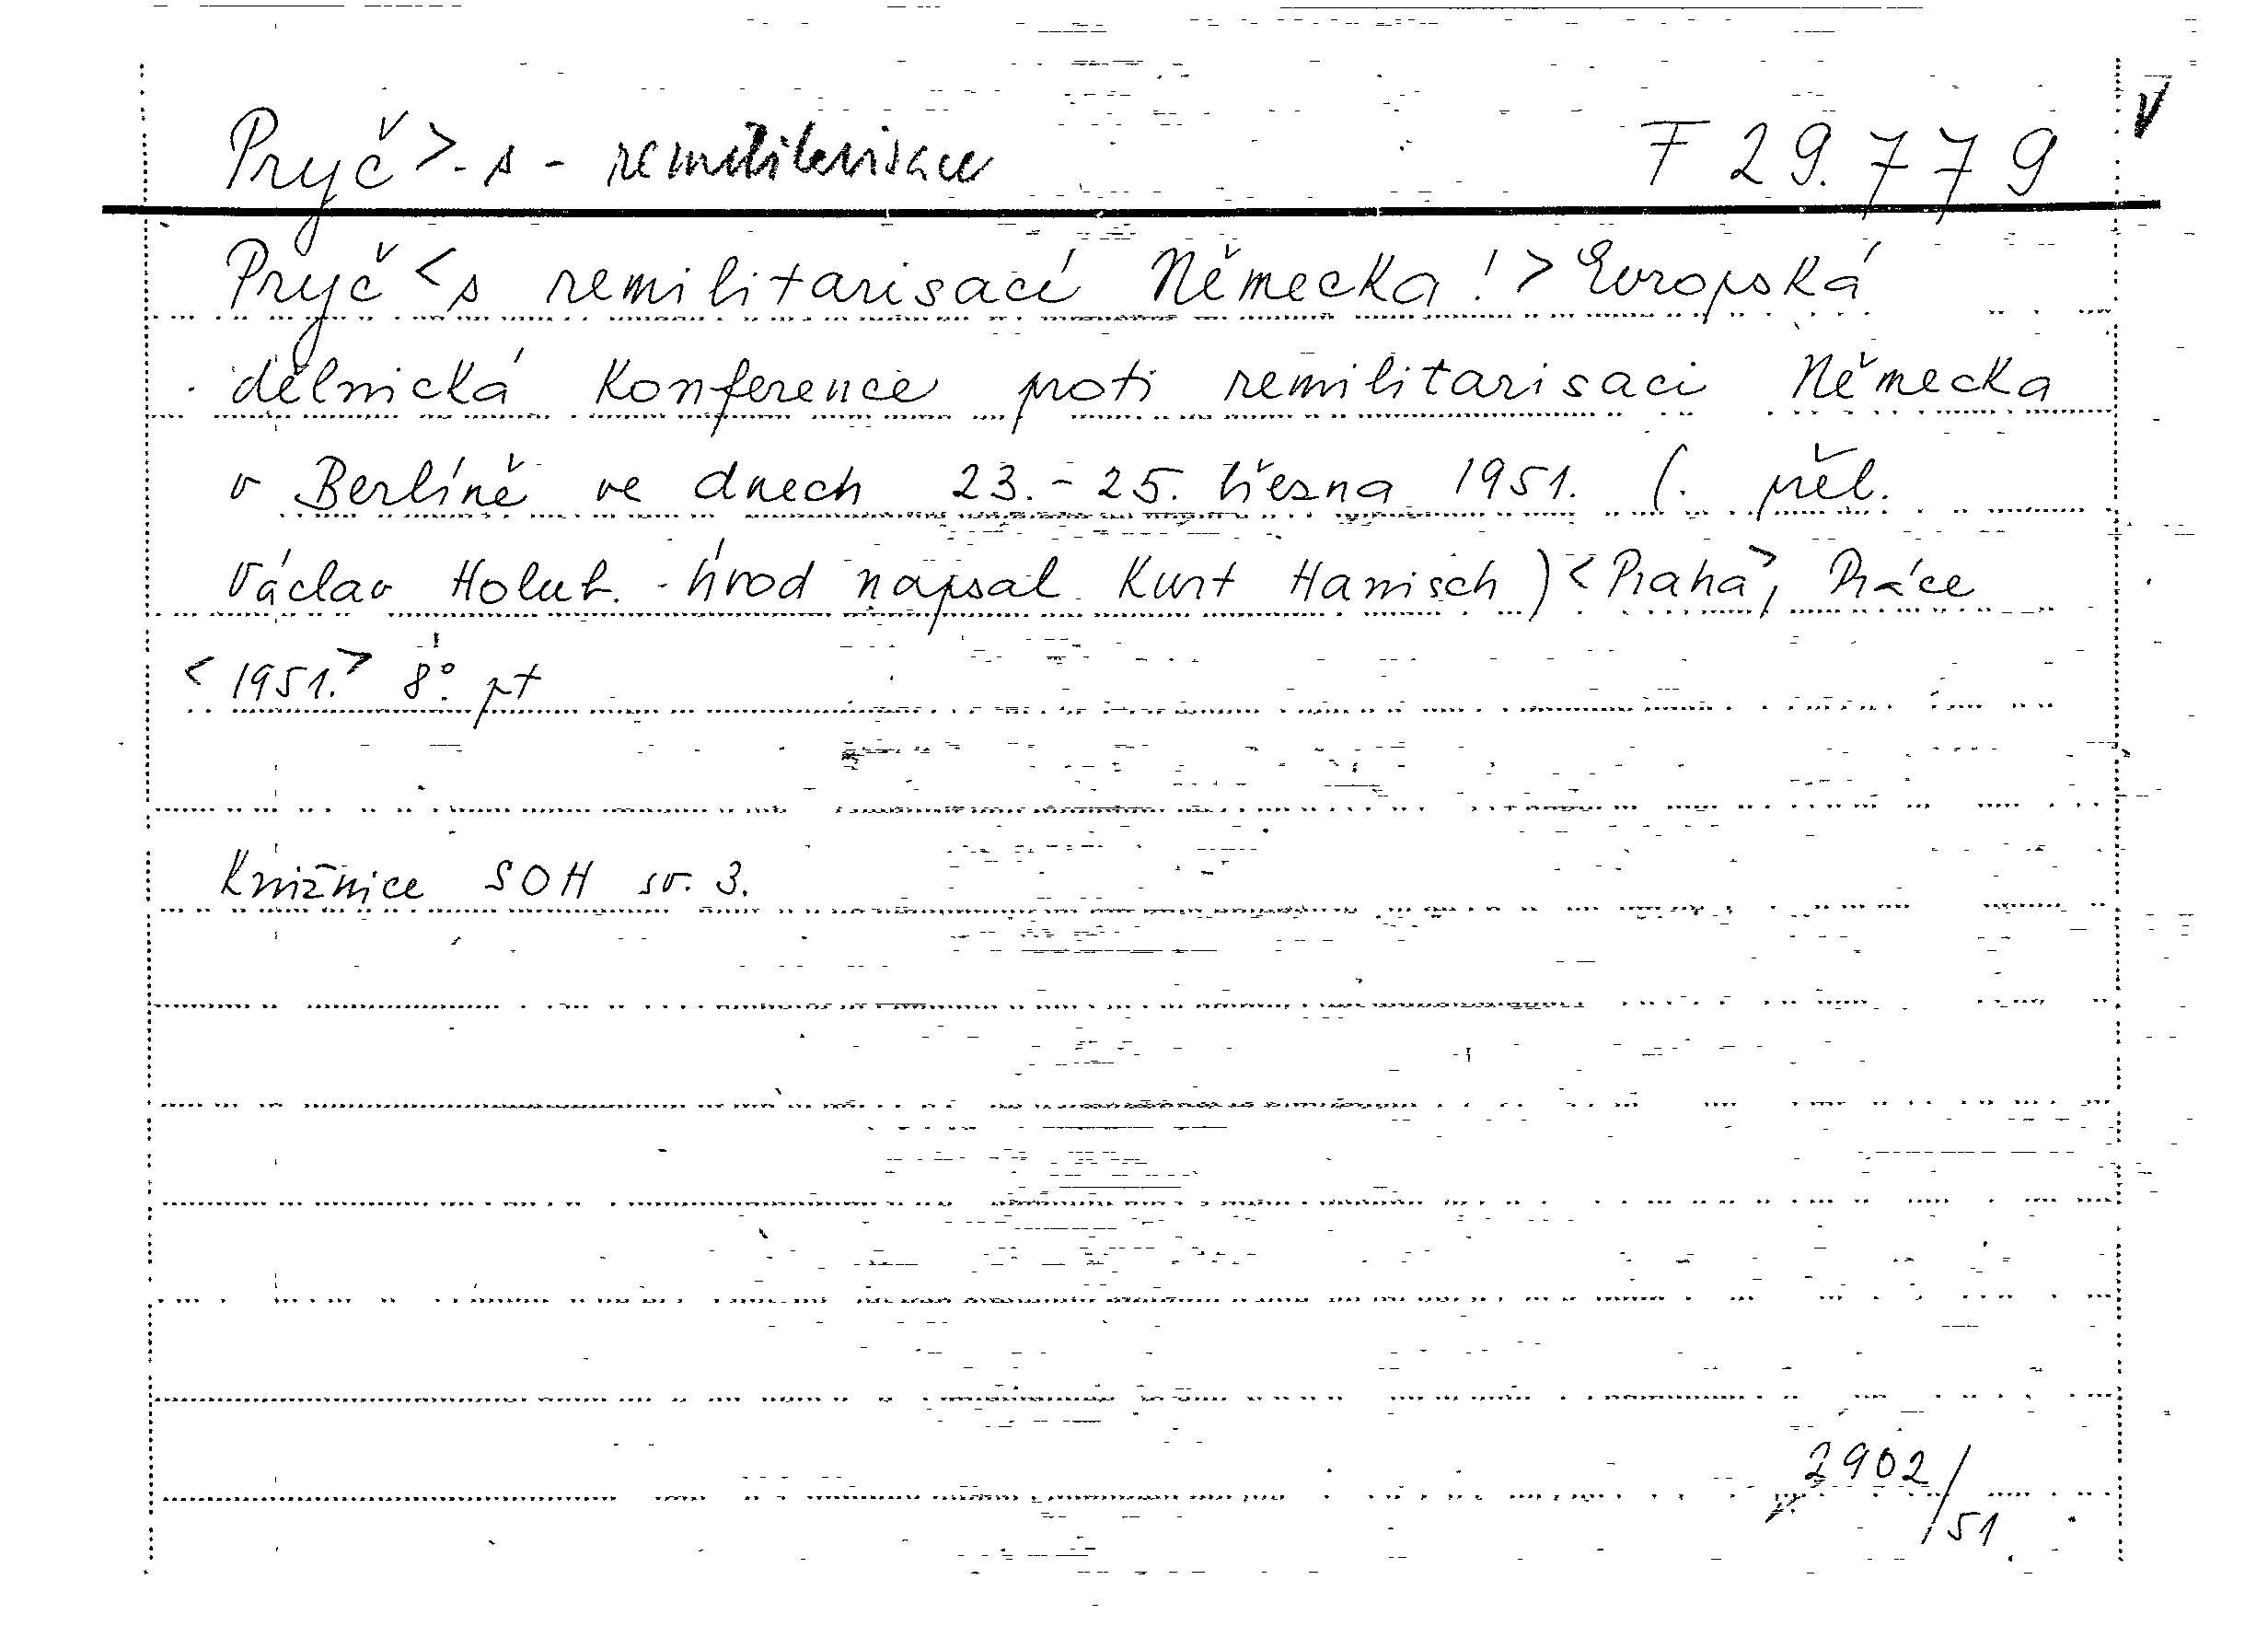 Pryč >-s- remilitarisace F 29.779 V
Pryč < s remilitarisací Německa! > Evropská
dělnická konference proti remilitarisaci Německa
v Berlíně ve dnech 23.-25. března 1951. (. přel.
Václav Holub. - Úvod napsal Kurt Hanisch) < Praha >, Práce
< 1951. > 8°. pt
Knižnice SOH sv. 3.
2902/51